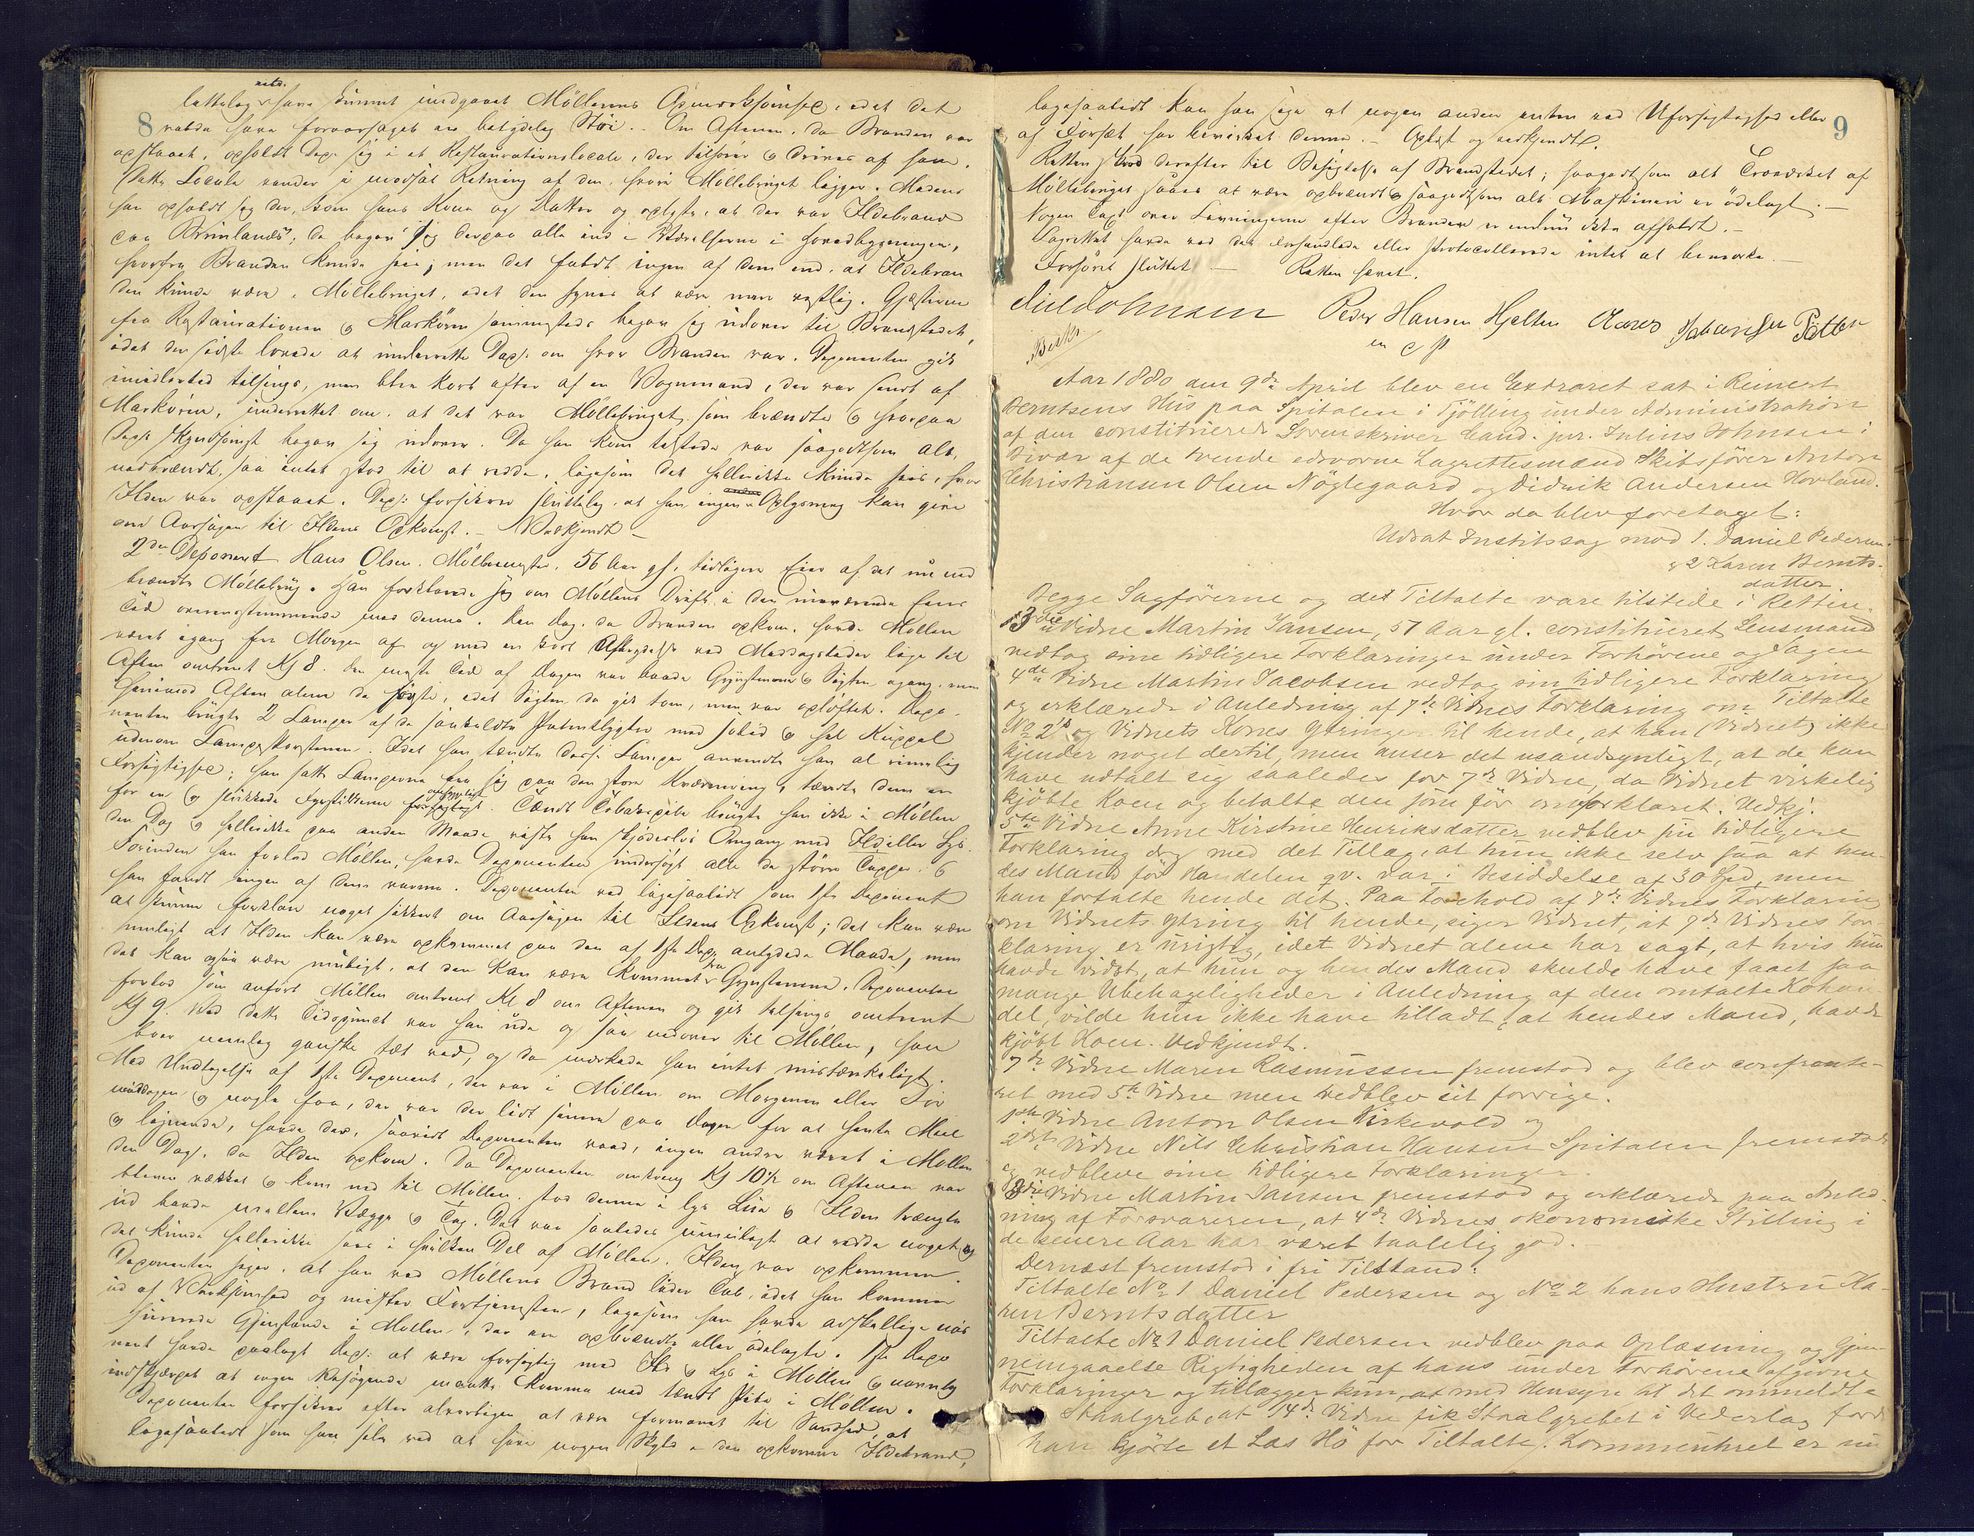 8
lettelig have kunnet undgaaet Møllerens Opmærksomhed, idet det
vilde have foraarsaget en betydelig Støi. Om Aftenen, da Branden var
opstaaet, opholdt Dep. sig i et Restaurationslocale, der tilhører & drives af ham.
Dette Locale vender i modsat Retning af den, hvori Møllebruget ligger. Medens
han opholdt sig der, kom hans Kone og Datter og oplyste, at der var Ildebrand
paa Brunlanæs; de begav sig derpaa alle ind i Værelserne i Hovedbygningen,
hvorfra Branden kunde sees; men det faldt ingen af dem ind, at Ildebran
den kunde være i Møllebruget, idet den synes at være mere vestlig. Gjæsterne
fra Restaurationen & Markøren sammesteds begav sig udover til Brandstedet,
idet den sidste lovede at underrette Dep. om hvor Branden var. Deponenten gik
imidlertid tilsengs, men blev kort efter af en Vognmand, der var sendt af
Markøren, underrettet om, at det var Møllebruget, som brændte & hvorpaa
Dep. skyndsomst begav sig udover. Da han kom tilstede var saagodtsom alt
nedbrændt, saa intet stod til at redde, ligesom det hellerikke kunde sees, hvor
Ilden var opstaaet. Dep. forsikrer sluttelig, at han ingen Oplysning kan give
om Aarsagen til Ildens Opkomst. – Vedkjendt –
2den Deponent Hans Olsen, Møllemester, 56 Aar gl., tidligere Eier af det nu ned
brændte Møllebrug. Han forklarede sig om Møllens Drift i den nuværende Eiers
Tid overensstemmende med denne. Den Dag, da Branden opkom, havde Møllen
været igang fra Morgen af og med en kort Afbrydelse ved Middagstider lige til
Aften omtrent Kl 8. Den meste Tid af Dagen var baade Grynstenene & Sigten igang, men
henimod Aften alene de første, idet Sigten da gik tom, men var opløftet. Depo-
nenten brugte 2 Lamper af de saakaldte Patentlygter med solid & hel Kuppel
udenom Lampeskorstenen. Idet han tændte disse Lamper anvendte han al rimelig
Forsigtighed; han satte Lamperne fra sig paa den store Kværnving, tændte dem en
for en & slukkede Fyrstikkerne forsigtigt. Tændt Tobakspibe brugte han ikke i Møllen
den Dag & hellerikke paa anden Maade viste han skjødesløs Omgang med Ild eller Lys.
Forinden han forlod Møllen, havde Deponenten undersøgt alle de større Tapper &
han fandt ingen af dem varme. Deponenten ved ligesaalidt som 1ste Deponent
at kunne forklare noget sikkert om Aarsagen til Ildens Opkomst; det kan være
muligt at Ilden kan være opkommet paa den af 1ste Dep. antydede Maade, men
det kan ogsaa være muligt, at den kan være kommet fra Grynstenene. Deponenten
forlod som anført Møllen omtrent Kl 8 om Aftenen og gik tilsengs omtrent
Kl 9. Ved dette Tidspunct var han ude og saa nedover til Møllen, han
boer nemlig ganske tæt ved, og da mærkede han intet mistænkeligt.
Med Undtagelse af 1ste Deponent, der var i Møllen om Morgenen eller For
middagen, & nogle faa, der var der lidt senere paa Dagen for at hente Meel
& lignende, havde der, saavidt Deponenten veed, ingen andre været i Møllen
den Dag, da Ilden opkom. Da Deponenten omtrent Kl 10½ om Aftenen var
bleven vækket & kom ned til Møllen, stod denne i lys Lue & Ilden trængte
ud baade mellem Vægge & Tag. Det var saaledes umuligt at redde noget og
det kunde hellerikke sees i hvilken Del af Møllen Ilden var opkommen.
Deponenten siger, at han ved Møllens Brand lider Tab, idet han kommer
ud af Virksomhed og mister Fortjenesten, ligesom han havde adskillige nær
hørende Gjenstande i Møllen, der ere opbrændte eller ødelagte. 1ste Depo
nent havde paalagt Dep. at være forsigtig med Ild & Lys i Møllen & navnlig
indskjærpet at ingen Besøgende maatte komme med tændt Pibe i Møllen.
Deponenten forsikrer efter alvorligen at være formanet til Sandhed, at
ligesaalidt som han selv ved at have nogen Skyld i den opkomne Ildebrand,
9
ligesaalidt kan han sige at nogen anden enten ved Uforsigtighed eller
af Forsæt har bevirket denne. – Oplæst og vedkjendt.
Retten skred derefter til Besigtelse af Brandstedet; saagodtsom alt Træværket af
Møllebruget saaes at være opbrændt & saagodtsom alt Maskineri er ødelagt. –
Nogen Taxt over Levningerne efter Branden er endnu ikke afholdt. –
Lagrettet havde ved det Forhandlede eller Protocollerede intet at bemærke. –
Forhøret sluttet. – Retten hævet.
Jul Johnsen Peder Hansen Hjelten Chares Johansen Petter
m e P
Beskr.
Aar 1880 den 9de April blev en Extraret sat i Reinert
Berntsens Hus paa Spitalen i Tjølling under Administration
af den constituerede Sorenskriver Cand. jur. Julius Johnsen i
Bivær af de tvende edsvorne Lagrettesmænd Skibsfører Anton
Christiansen Olsen Nøglegaard og Didrik Andersen Hovland.
Hvor da blev foretaget:
Udsat Justitssag mod 1. Daniel Pedersen
& 2 Karen Bernts-
datter
Begge Sagførerne og det Tiltalte vare tilstede i Retten.
13de Vidne Martin Jansen, 57 Aar gl. constitueret Lensmand
vedtog sine tidligere Forklaringer under Forhørene og Sagen
4de Vidne Martin Jacobsen vedtog sin tidligere Forklaring
og erklærede i Anledning af 7de Vidnes Forklaring om Tiltalte
No 2's og Vidnets Kones Ytringer til hende, at han (Vidnet) ikke
kjender noget dertil, men anser det usandsynligt, at de kan
have udtalt sig saaledes for 7de Vidne, da Vidnet virkelig
kjøbte Koen og betalte den som før omforklaret. Vedkj.
5te Vidne Anne Kirstine Henriksdatter vedblev sin tidligere
Forklaring dog med det Tillæg, at hun ikke selv saa at hen-
des Mand før Handelen qv. var i Besiddelse af 30 Spd, men
han fortalte hende det. Paa Forehold af 7de Vidnes Forklaring
om Vidnets Ytring til hende, siger Vidnet, at 7de Vidnes For-
klaring er urigtig, idet Vidnet alene har sagt, at hvis hun
havde vidst, at hun og hendes Mand skulde have faaet saa
mange Ubehageligheder i Anledning af den omtalte Kohan-
del, vilde hun ikke have tilladt, at hendes Mand, havde
kjøbt Koen. Vedkjendt.
7de Vidne Maren Rasmussen fremstod og blev confronte-
ret med 5te Vidne men vedblev sit forrige.
1ste Vidne Anton Olsen Virkevold og
2det Vidne Nils Christian Hansen Spitalen fremstod
og vedbleve sine tidligere Forklaringer.
13de Vidne Martin Jansen fremstod og erklærede paa Anled-
ning af Forsvareren, at 4de Vidnes økonomiske Stilling i
de senere Aar har været taalelig god.
Dernæst fremstod i fri Tilstand:
Tiltalte No 1 Daniel Pedersen og No 2 hans Hustru Ka-
ren Berntsdatter
Tiltalte No 1 Daniel Pedersen vedblev paa Oplæsning og Gjen-
nemgaaelse Rigtigheden af hans under Forhørene afgivne
Forklaringer og tillægger kun, at med Hensyn til det ommeldte
Staalgreb, at 14de Vidne fik Staalgrebet i Vederlag fordi
han kjørte et Læs Hø for Tiltalte. Lommeuhret er nu